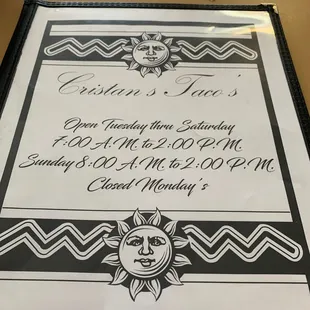 Cristan's Taco's
Open Tuesday thru Saturday
7:00 A.M. to 2:00 P.M.
Sunday 8:00 A.M. to 2:00 P.M.
Closed Monday's